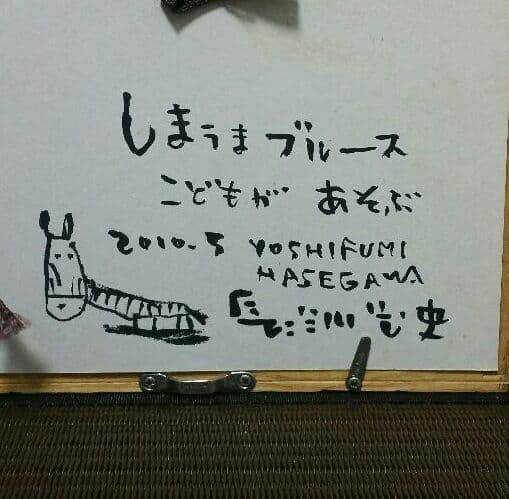 しまうまブルース
こどもが あそぶ
2010.5 YOSHIFUMI
HASEGAWA
長谷川義史